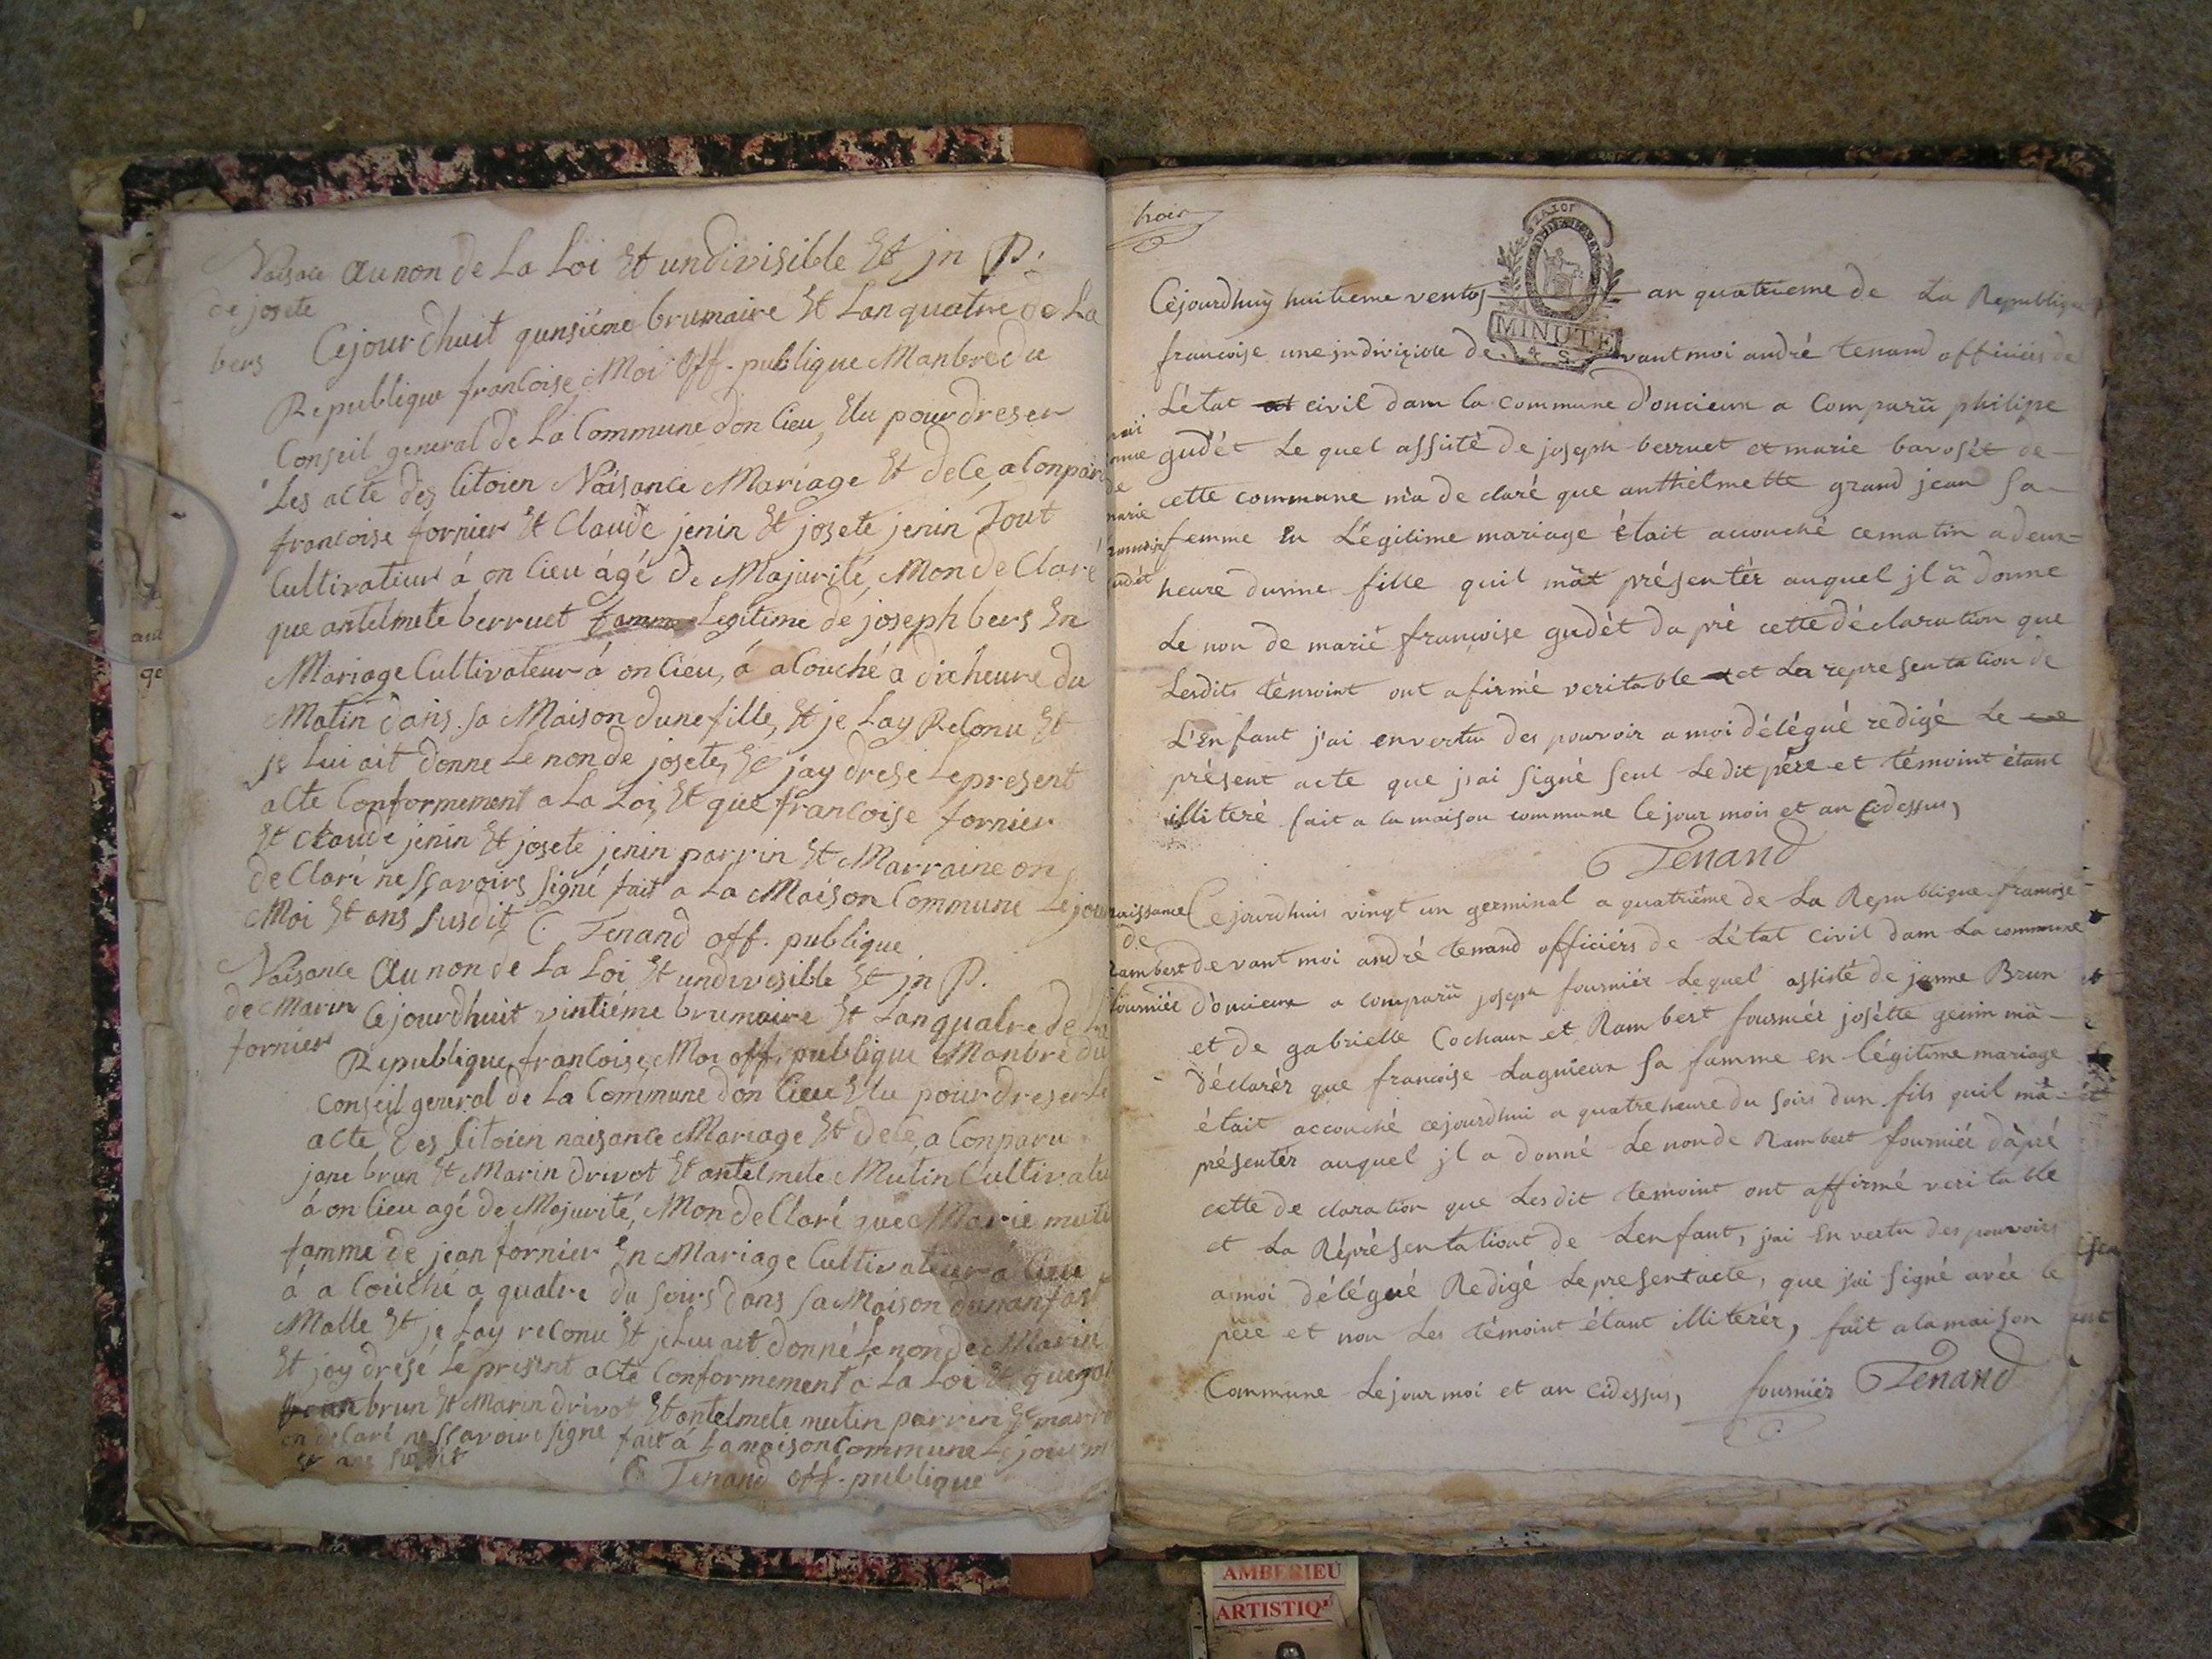 Naisance
de josete
bers
Au non de La Loi Et undivisible Et jn P.
Cejourdhuit qunsiéme brumaire Et Lan quatre de La
Republique francoise, Moi Off. publique Manbre du
Conseil general de La Commune don Cieu, Elu pour dreser
Les acte des Citoien Naisance Mariage Et dece, a Conparu
francoise fornier Et Claude jenin Et josete jenin Tout
Cultivateur á on Cieu ágé De Majurité, Mon de Claré
que antelmete berruet famme Legitime de joseph bers En
Mariage Cultivateur á on Cieu, á a Couché a dix heure du
Matin dans sa Maison dune fille, Et je Lay Reconu Et
je Lui ait donne Le non de josete, Et jay drese Le present
acte Conformement a La Loi, Et que francoise fornier
Et Claude jenin Et josete jenin parrin Et Marraine on
de Claré ne sçavoirs signé fait a La Maison Commune Le jour
Moi Et ans susdit C. Tenand off. publique
Naisance
de Marin
fornier
Au non de La Loi Et undivisible Et jn P.
Cejourdhuit vintiéme brumaire Et Lan quatre de La
Republique francoise, Moi off. publique Manbre du
Conseil general de La Commune don Cieu Elu pour dreser Le
acte Des Citoien naisance Mariage Et dece, a Conparu
jane brun Et Marin drivot Et antelmete Mutin Cultivateu
á on Cieu agé de Majurité, Mon de Claré que Marie muti
famme de jean fornier En Mariage Cultivateur á Cieu
á a Couché a quatre du soirs dans sa Maison dun anfant
Malle Et je Lay reconu Et je Lui ait donné Le non de Marin
Et jay dresé Le present acte Conformement á La Loi Et que
brun Et Marin drivot Et antelmete mutin parrin Et marr
on de Claré ne sçavoire signe fait á La maison Commune Le jour m
Et ans susdit
C Tenand off. publique
MINUTE
Cejourdhuy huitieme ventos an quatrieme de La Republique
francoise une indivizible de vant moi andré tenand officiérs de
Létat civil dam la commune d'oncieux a Comparü philipe
gudét Le quel assisté de joseph berruet et marie barosét de
cette commune m'a de claré que anthelmette grand jean sa
femme En Légitime mariage était accouché ce matin a deux
heure dunne fille quil mât présentér auquel jl â donne
Le non de marie françoise gudét da pré cette déclaration que
Lesdits témoint ont afirmé veritable et La representation de
L'Enfant j'ai en vertu des pouvoir a moi délégué redigé Le
présent acte que j'ai signé seul Ledit pére et témoint étant
illiteré fait a la maison commune le jour mois et an cidessus,
Tenand
naissance
de
Rambert
fourniér
Cejourdhuis vingt un germinal a quatriéme de La Republique francoise
devant moi andré tenand officiérs de Létat civil dam La commune
d'oncieux a comparü joseph fourniér Lequel assisté de janne Brun
et de gabrielle Cochaux et Rambert fourniér josétte genin mâ
déclarér que francoise Lagnieux sa famme en légitime mariage
était accouché cejourdhui a quatre heure du soirs dun fils quil mâ
présentér auquel jl a donné Le non de Rambert fourniér dâpré
cette de claration que Lesdit temoint ont affirmé veritable
et La Réprésentationt de Lenfant, j'ai En vertu des pouvoirs
a moi délégué Redigé Le present acte, que j'ai signé avéc le
pére et non Les témoint étant illiterér, fait a la maison
Commune Le jour moi et an cidessus, fourniér Tenand
AMBERIEU
ARTISTIQ